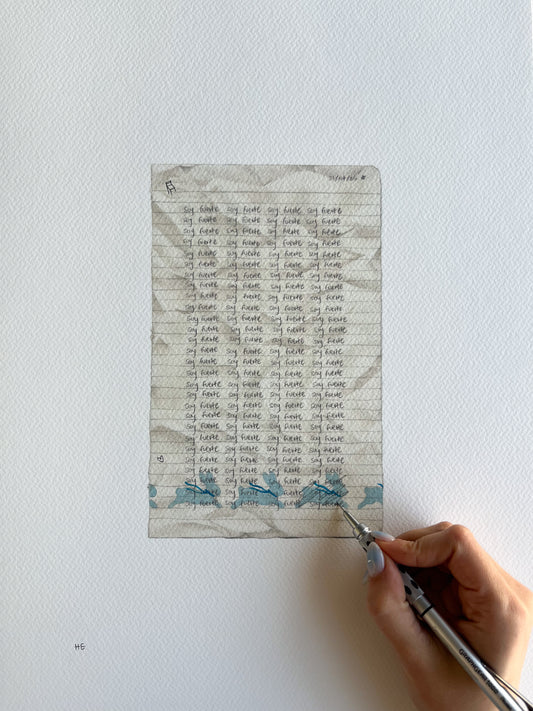 soy fuerte soy fuerte soy fuerte soy fuerte
soy fuerte soy fuerte soy fuerte soy fuerte
soy fuerte soy fuerte soy fuerte soy fuerte
soy fuerte soy fuerte soy fuerte soy fuerte
soy fuerte soy fuerte soy fuerte soy fuerte
soy fuerte soy fuerte soy fuerte soy fuerte
soy fuerte soy fuerte soy fuerte soy fuerte
soy fuerte soy fuerte soy fuerte soy fuerte
soy fuerte soy fuerte soy fuerte soy fuerte
soy fuerte soy fuerte soy fuerte soy fuerte
soy fuerte soy fuerte soy fuerte soy fuerte
soy fuerte soy fuerte soy fuerte soy fuerte
soy fuerte soy fuerte soy fuerte soy fuerte
soy fuerte soy fuerte soy fuerte soy fuerte
soy fuerte soy fuerte soy fuerte soy fuerte
soy fuerte soy fuerte soy fuerte soy fuerte
soy fuerte soy fuerte soy fuerte soy fuerte
soy fuerte soy fuerte soy fuerte soy fuerte
soy fuerte soy fuerte soy fuerte soy fuerte
soy fuerte soy fuerte soy fuerte soy fuerte
soy fuerte soy fuerte soy fuerte soy fuerte
soy fuerte soy fuerte soy fuerte soy fuerte
soy fuerte soy fuerte soy fuerte soy fuerte
soy fuerte soy fuerte soy fuerte soy fuerte
soy fuerte soy fuerte soy fuerte soy fuerte
soy fuerte soy fuerte soy fuerte soy fuerte
soy fuerte soy fuerte soy fuerte soy fuerte
soy fuerte soy fuerte soy fuerte soy fuerte
HE
GRAPHGEAR 1000